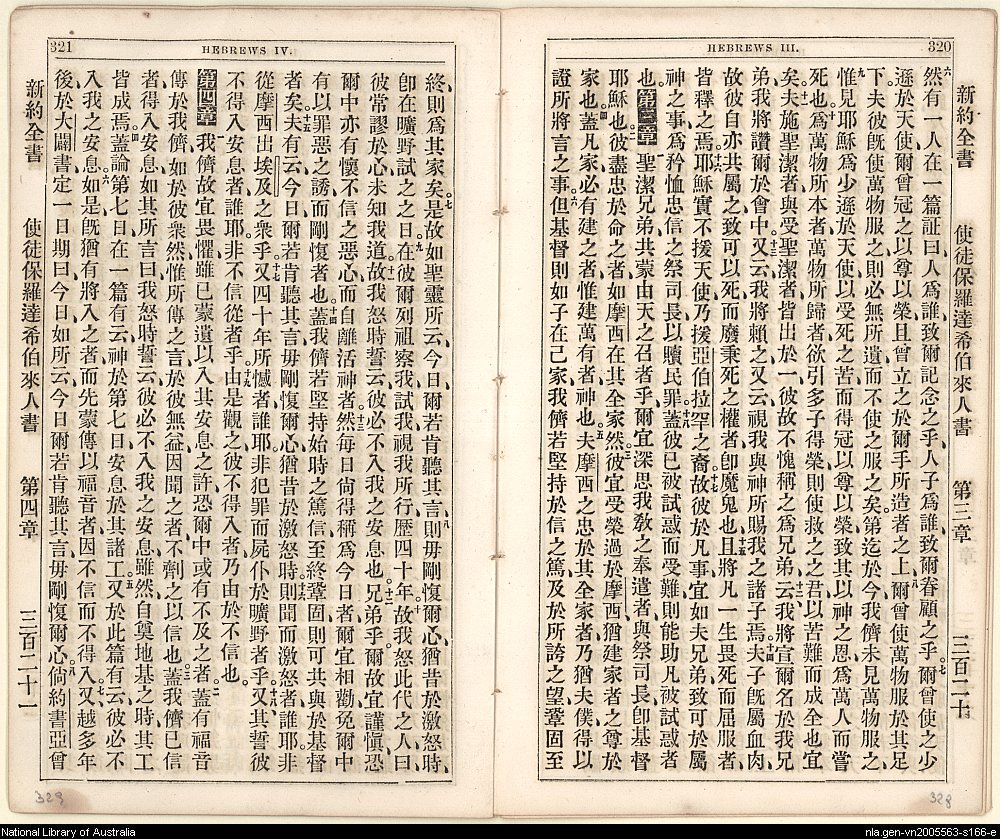 320
HEBREWS III.
新約全書 使徒保羅達希伯來人書 第三章 三百二十
然有一人在一篇証曰、人爲誰、致爾記念之乎、人子爲誰、致爾眷顧之乎、爾曾使之少
遜於天使、爾曾冠之以尊以榮、且曾立之於爾手所造者之上、爾曾使萬物服於其足
下、夫彼旣使萬物服之、則必無所遺、而不使之服之矣、第迄於今、我儕未見萬物服之、
惟見耶穌爲少遜於天使、以受死之苦、而得冠以尊以榮、致其以神之恩、爲萬人而嘗
死也、爲萬物所本者、萬物所歸者、欲引多子得榮、則使救之之君、以苦難而成全也宜
矣、夫施聖潔者、與受聖潔者、皆出於一、彼故不愧稱之爲兄弟、云、我將宣爾名於我兄
弟、我將讚爾於會中、又云、我將賴之、又云、視我與神所賜我之諸子焉、夫子旣屬血肉、
故彼自亦共屬之、致可以死而廢秉死之權者、卽魔鬼也、且將凡一生畏死而屈服者、
皆釋之焉、耶穌實不援天使、乃援亞伯拉罕之裔、故彼於凡事、宜如夫兄弟、致可於屬
神之事、爲矜恤忠信之祭司長、以贖民罪、蓋彼已被試惑而受難、則能助凡被試惑者
也、第三章 聖潔兄弟、共蒙由天之召者乎、爾宜深思我敎之奉遣者、與祭司長、卽基督
耶穌也、彼盡忠於命之者、如摩西在其全家然、彼宜受榮過於摩西、猶建家者之尊於
家也、蓋凡家必有建之者、惟建萬有者、神也、夫摩西之忠於其全家者、乃猶夫僕、得以
證所將言之事、但基督則如子在己家、我儕若堅持於信之篤、及於所誇之望、鞏固至
321
HEBREWS IV.
終、則爲其家矣、是故如聖靈所云、今日爾若肯聽其言、則毋剛愎爾心、猶昔於激怒時、
卽在曠野試之之日、在彼爾列祖察我試我、視我所行、歷四十年、故我怒此代之人、曰、
彼常謬於心、未知我道、故我怒時誓云、彼必不入我之安息也、兄弟乎、爾故宜謹愼、恐
爾中亦有懷不信之惡心、而自離活神者、然每日尙得稱爲今日者、爾宜相勸、免爾中
有以罪惡之誘而剛愎者也、蓋我儕若堅持始時之篤信、至終鞏固、則可共與於基督
者矣、夫有云、今日爾若肯聽其言、毋剛愎爾心、猶昔於激怒時、則聞而激怒者誰耶、非
從摩西出埃及之衆乎、又四十年所憾者誰耶、非犯罪而屍仆於曠野者乎、又其誓彼
不得入安息者、誰耶、非不信從者乎、由是觀之、彼不得入者、乃由於不信也、
第四章 我儕故宜畏懼、雖已蒙遺以入其安息之許、恐爾中或有不及之者、蓋有福音
傳於我儕、如於彼衆然、惟所傳之言、於彼無益、因聞之者不劑之以信也、蓋我儕已信
者、得入安息、如其所言曰、我怒時誓云、彼必不入我之安息、雖然、自奠地基之時、其工
皆成焉、蓋論第七日、在一篇有云、神於第七日安息於其諸工、又於此篇有云、彼必不
入我之安息、如是旣猶有將入之者、而先蒙傳以福音者、因不信而不得入、又越多年
後、於大闢書、定一日期曰、今日、如所云、今日爾若肯聽其言、毋剛愎爾心、倘約書亞曾
新約全書 使徒保羅達希伯來人書 第四章 三百二十一
329
328
National Library of Australia
nla.gen-vn2005563-s166-e